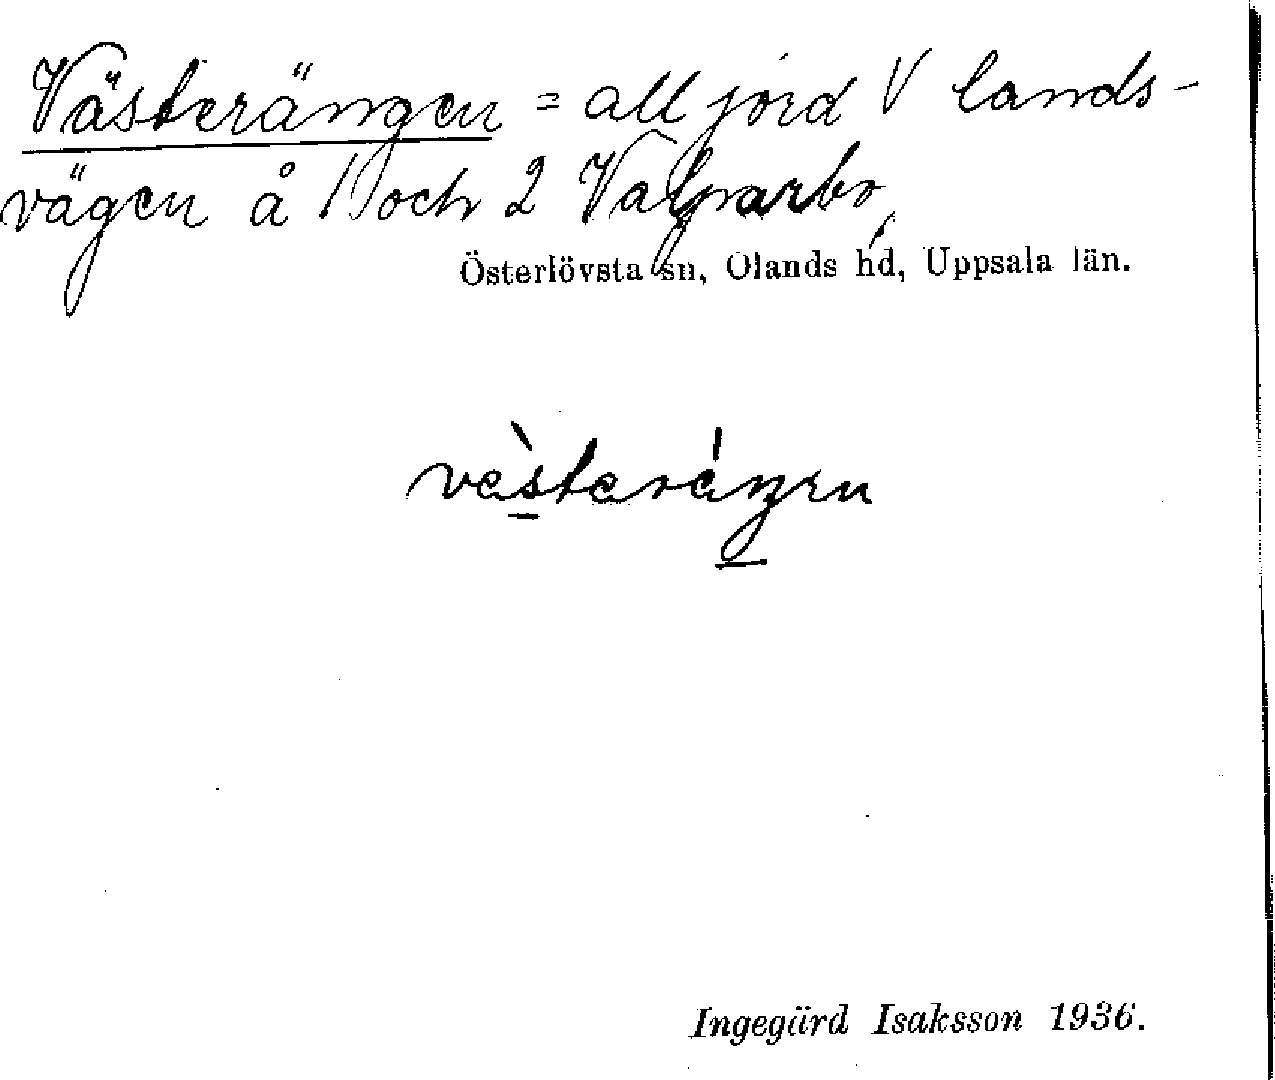 Västerängen = all jord V lands-
vägen å 1 och 2 Valparbo,
Österlövsta sn, Olands hd, Uppsala län.
vèsteráŋen
Ingegärd Isaksson 1936.